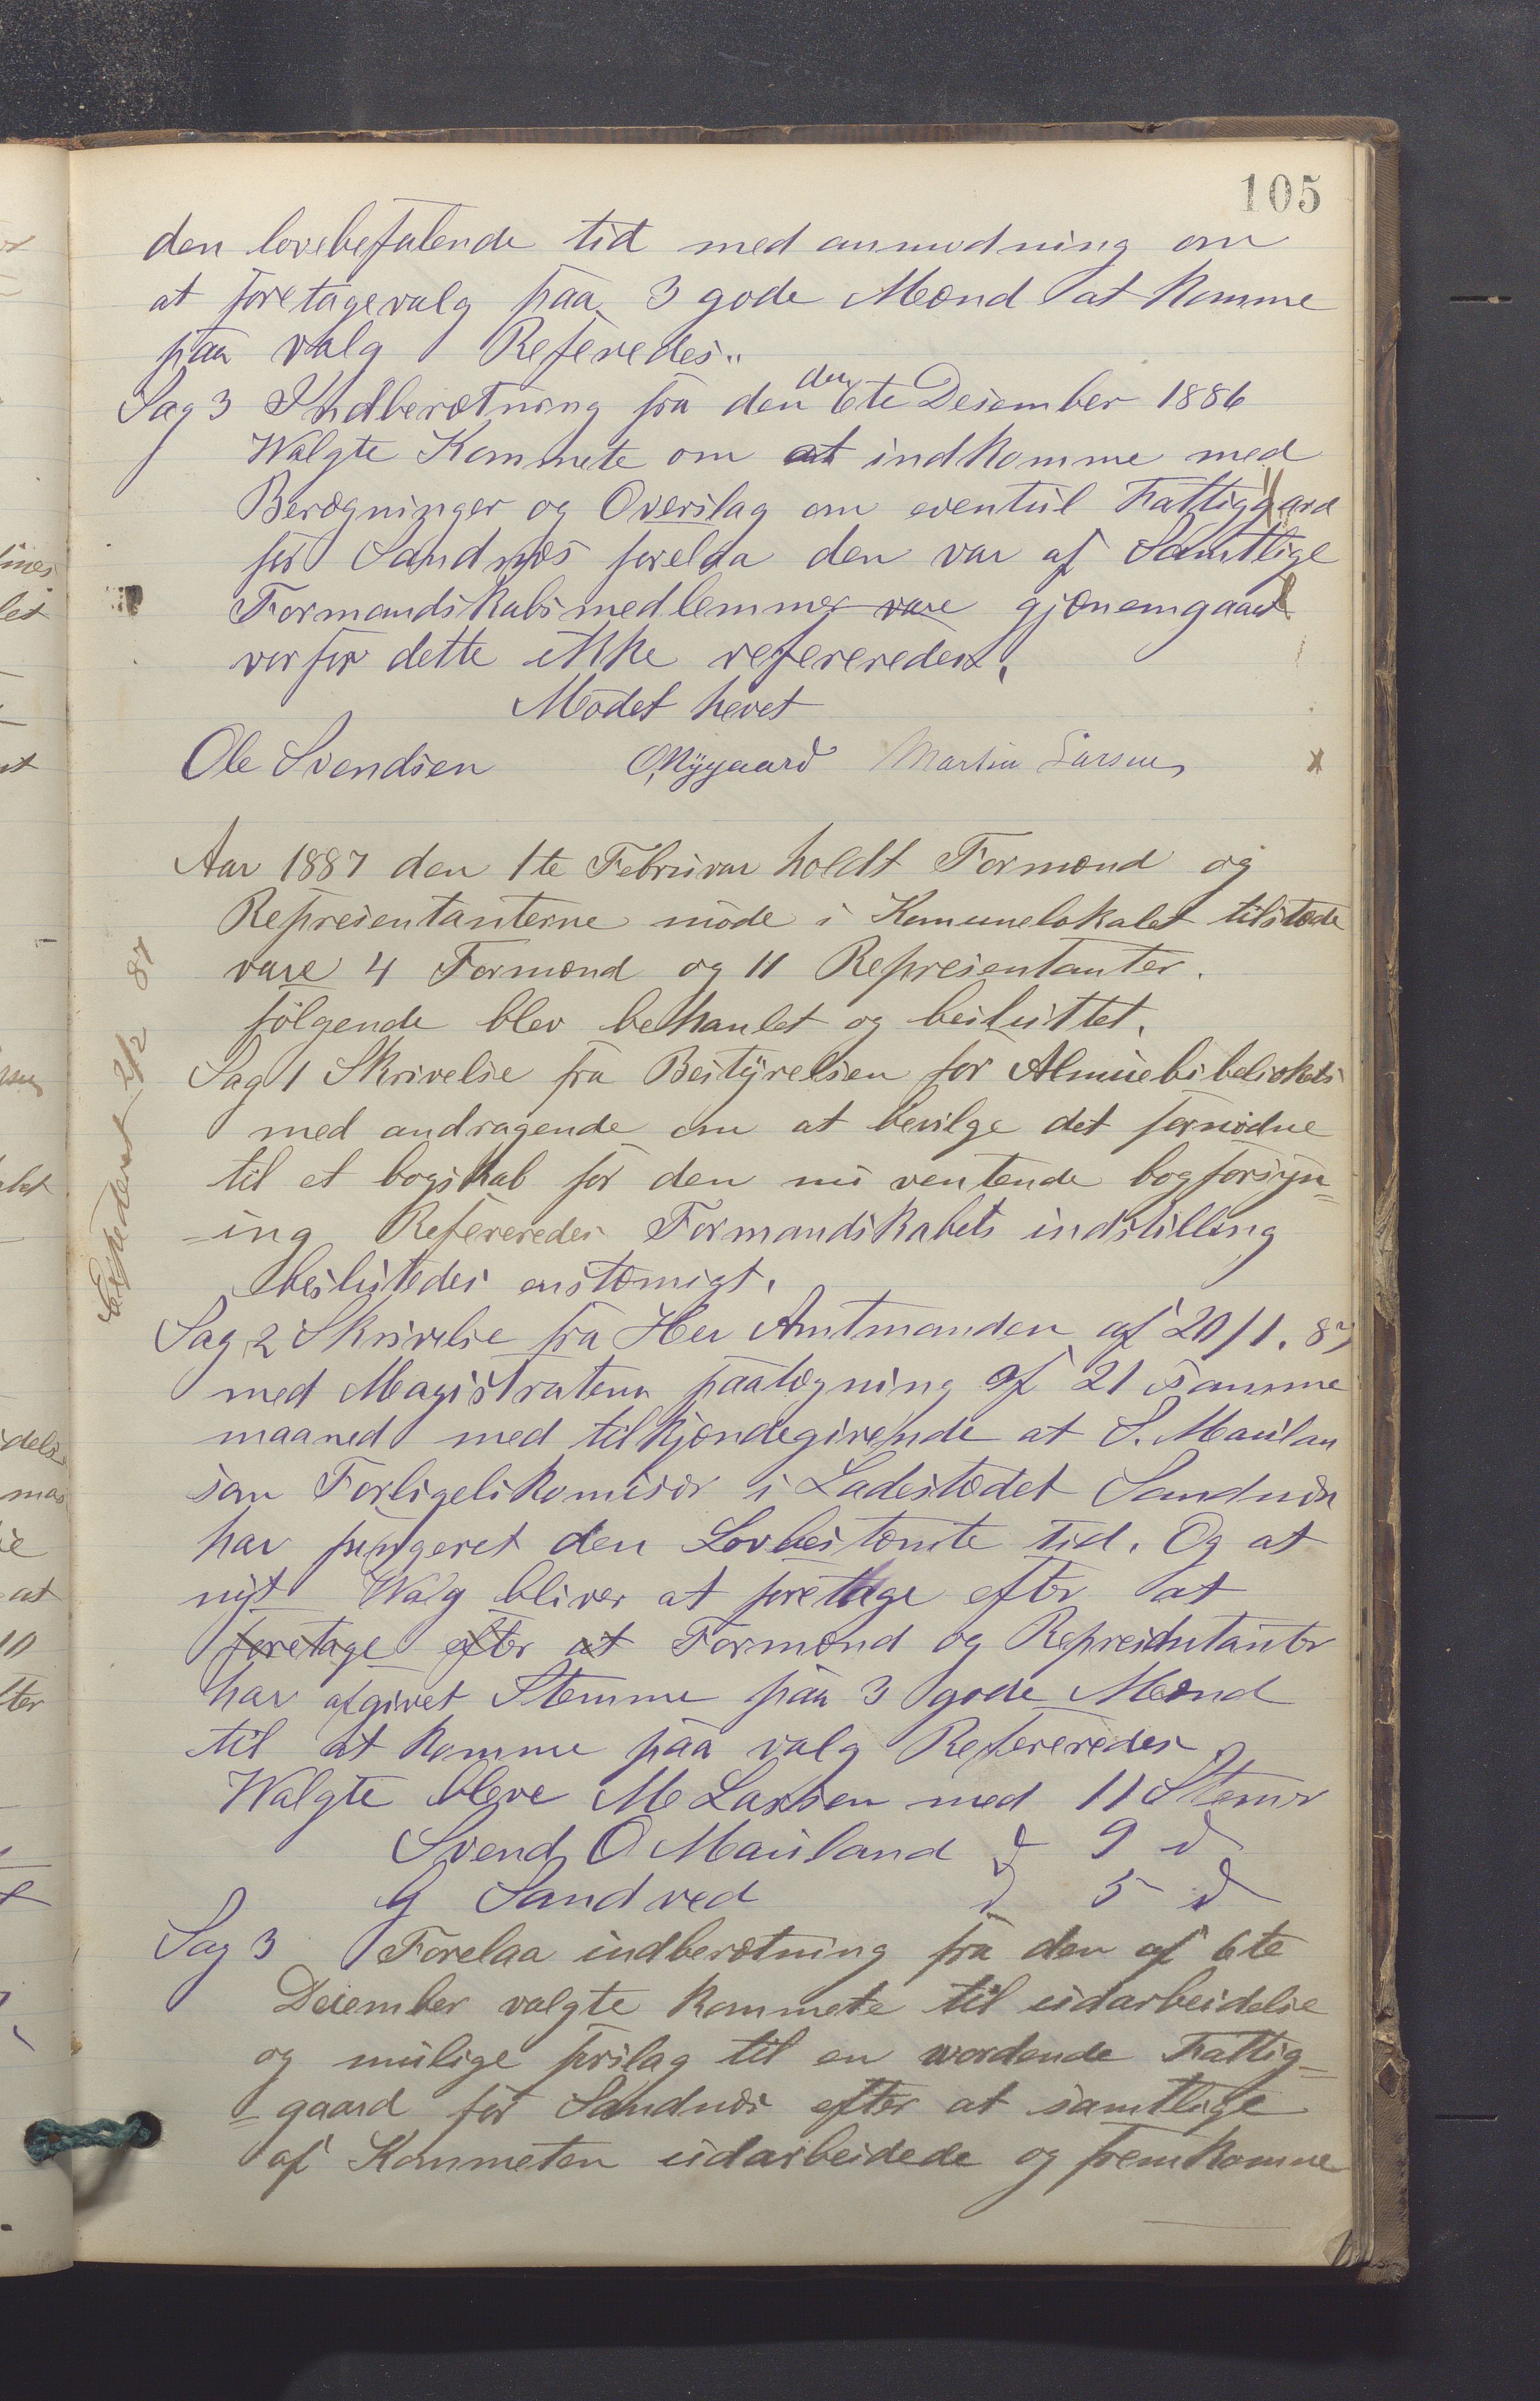 105
den lovbefalende tid med anmodning om
at foretagevalg paa 3 gode Mænd at komme
paa valg Refeредes..
Sag 3 Indberætning fra den den 6te Desember 1886
Walgte Kommete om at indkomme med
Berægninger og Overslag om eventuel Fattiggaard
for Sandnæs forelaa den var af Samtlige
Formandskabsmedlemmer vare gjænemgaaet
vorfor dette ikke refereredes.
Mødet hevet
Ole Svendsen O. Nygaard Martin Larsen
Aar 1887 den 1te Februar holdt Formænd og
Represientanterne møde i Komunelokalet tilstæde
vare 4 Formænd og 11 Represientanter.
følgende blev behanlet og besluttet.
Sag 1 Skrivelse fra Bestyrelsen for Almuebibeliokets
med andragende om at bevilge det fornødne
til et bogskab for den nu ventende bogforsyn=
=ing Refereredes Formandskabets indstilling
beslutedes enstæmigt.
Expederet 2/2 87
Sag 2 Skrivelse fra Her Amtmanden af 20/1. 87
med Magistratens paategning af 21 samme
maaned med tilkjændegivende at S. Maulan
som Forligelikomisær i Ladestædet Sandnæs
har fungeret den Lovbestæmte tid. Og at
nyt Walg bliver at foretage efter at
foretage efter at Formænd og Represientanter
har afgivet Stemme paa 3 gode Mænd
til at komme paa valg Refereredes
Walgte bleve M Larsen med 11 Stemr
Svend O Mauland d 9 d
G Sandved d 5 d
Sag 3 Forelaa indberætning fra den af 6te
Desember valgte kommete til udarbeidelse
og mulige forslag til en wordende Fattig=
=gaard for Sandnæs efter at samtlige
af Kommeten udarbeidede og fremkomne